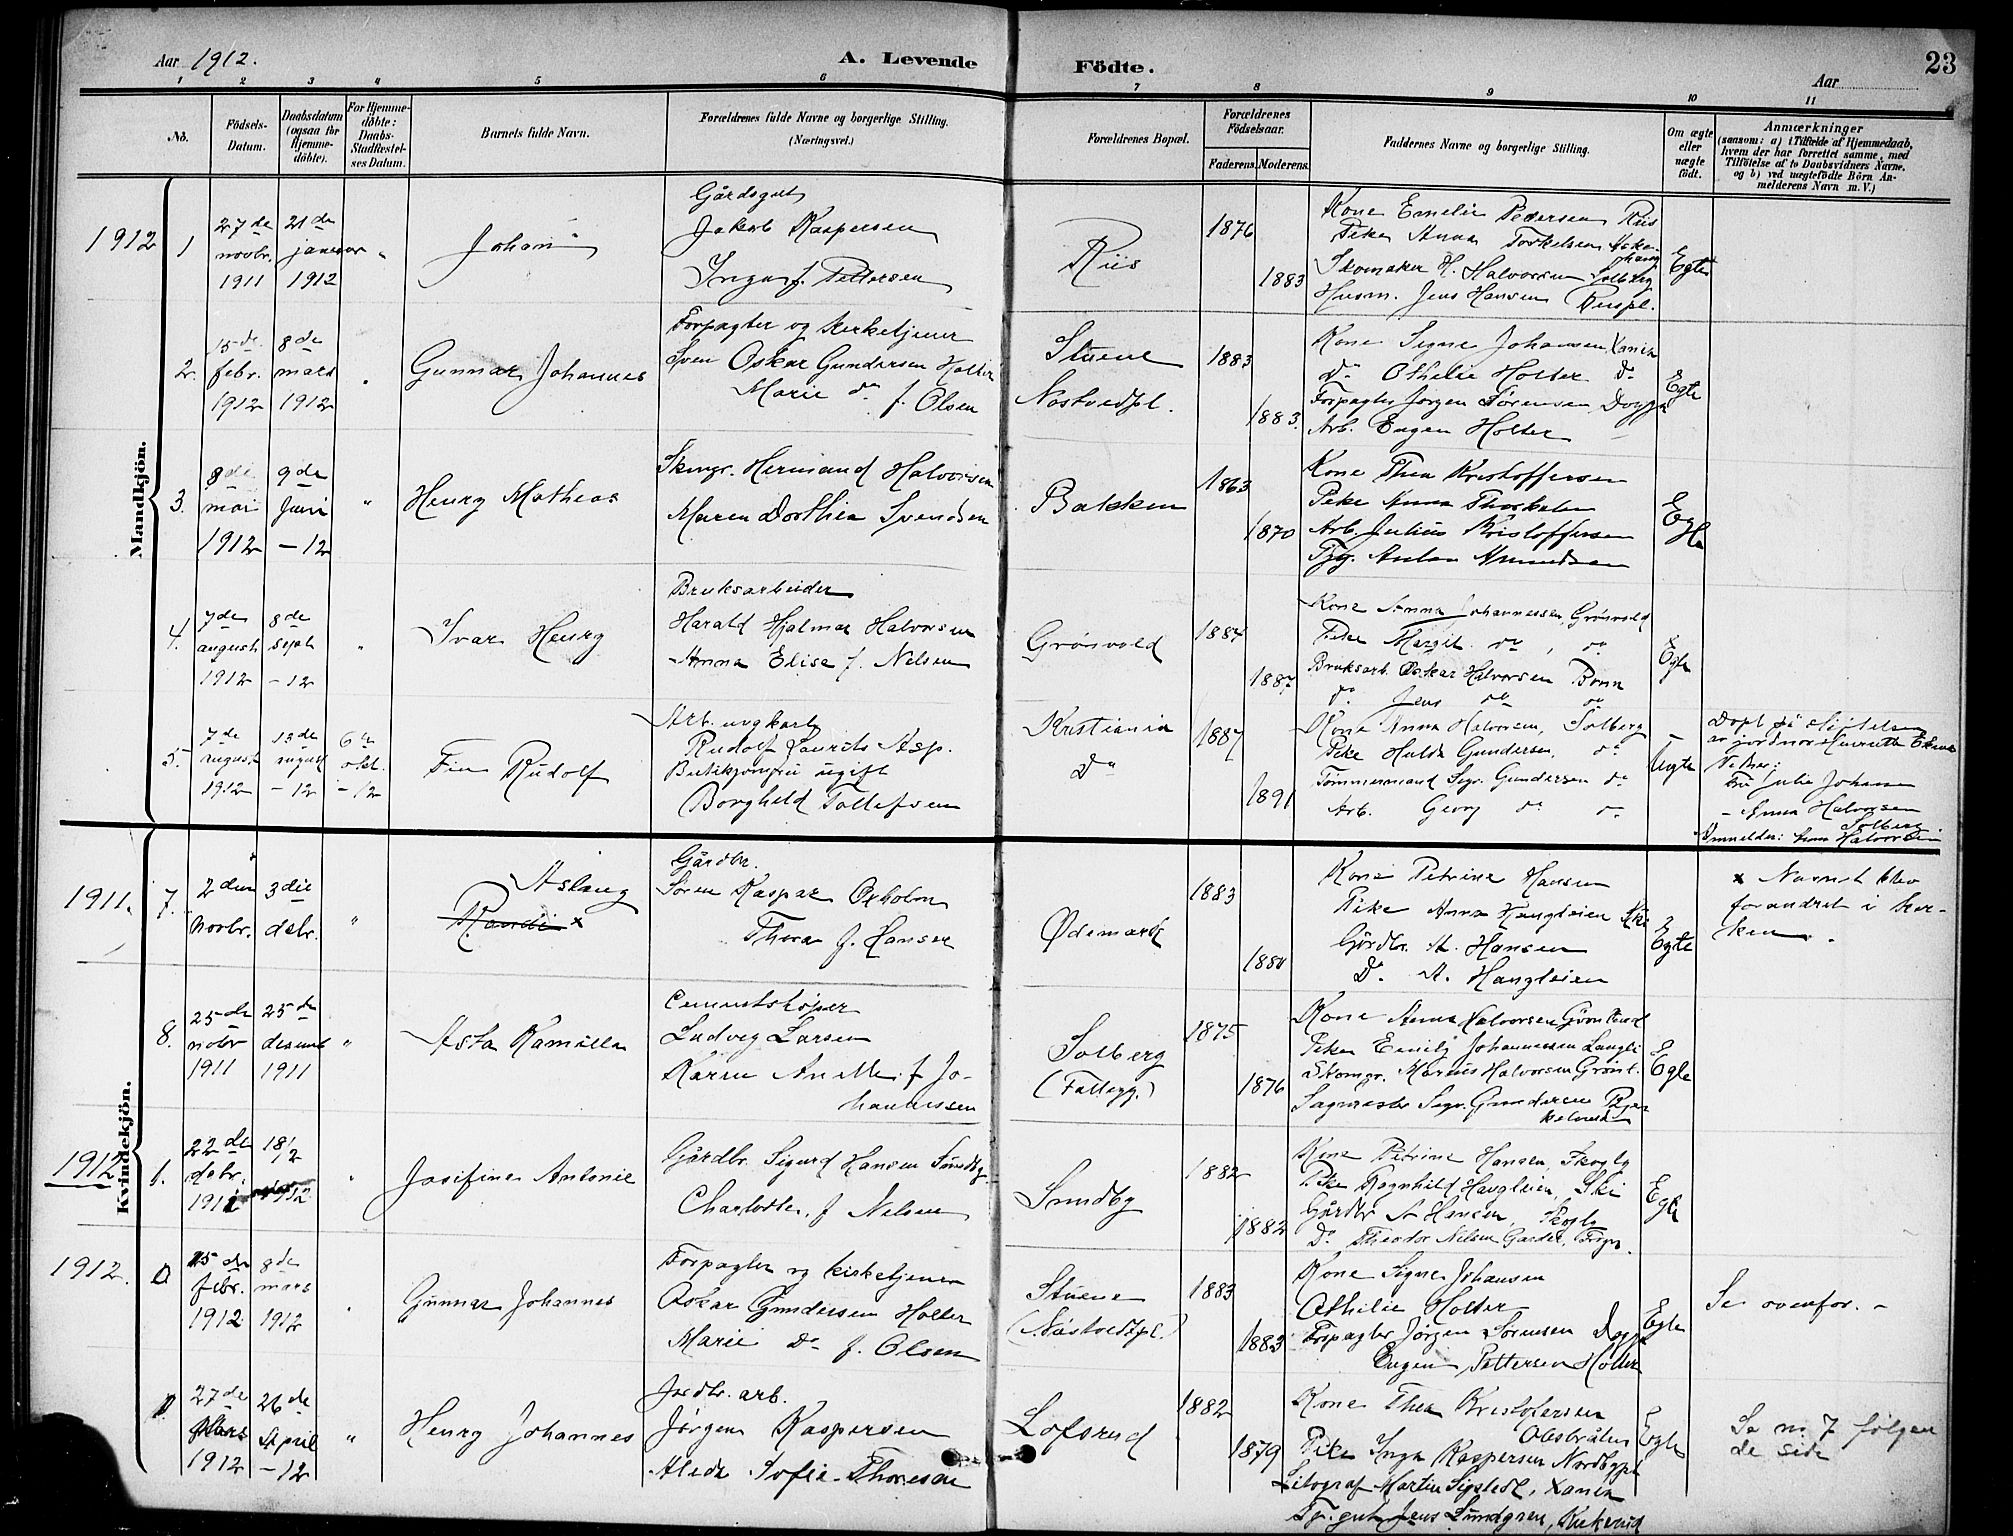 Aar 1912.
A. Levende Födte.
Aar
23
1 2 3 4 5 6 7 8 9 10 11
Nö.
Födsels-
Datum.
Daabsdatum
(ogsaa for
Hjemme-
döbte).
For Hjemme-
döbte:
Daabs-
Stadfæstel-
ses Datum.
Barnets fulde Navn.
Forældrenes fulde Navne og borgerlige Stilling.
(Næringsvei.)
Forældrenes Bopæl.
Forældrenes
Födselsaar.
Faderens.
Moderens.
Faddernes Navne og borgerlige Stilling.
Om ægte
eller
uægte
födt.
Anmærkninger
(saasom: a) i Tilfælde af Hjemmedaab,
hvem der har forrettet samme, med
Tilföielse af to Daabsvidners Navne,
og b) ved uægtefödte Börn An-
melderens Navn m. V.)
Mandkjön.
1912
1
27de
novbr.
1911
21de
januar
1912
"
Johan
Gårdsgut
Jakob Kaspersen
Inga f. Pettersen
Riis
1876
1883
Kone Emelie Pedersen Riis
Pike Anna Torkelsen
Skomaker H. Halvorsen Solberg
Husm. Jens Hansen Riispl.
Egte
2.
15de
febr.
1912
8de
mars
1912
"
Gunnar Johannes
Forpagter og kirketjener
Sven Oskar Gundersen Holter
Marie do f. Olsen
Stuene
Nøstvedtpl.
1883
1883.
Kone Signe Johansen, Xania
Do Othelie Holter Do
Forpagter Jørgen Sørensen
Arb. Eugen Holter
Egte
3.
8de
mai
1912
9de
Juni
-12
"
Henry Mathias
Hermand Halvorsen
Maren Dorthea Svendsen
Bakken
1863
1870
Kone Thea Kristoffersen
Pike Anna
Arb. Julius Kristoffersen
Anton Amundsen
Egte
4.
7de
august
1912
8de
sept
-12
"
Ivar Henry
Bruksarbeider
Harald Hjalmar Halvorsen
Anna Elise f. Nelsen
Grønvold
1884
1887
Kone Anna Johannessen, Grønvold
Pike Margit do, do
Bruksarb. Oskar Halvorsen Bonn
do Jens do do
Egte
5.
7de
august
1912
13de
august
-12
6te
okt.
-12
Fin Rudolf
Arb. ungkarl
Rudolf Laurits Asp.
Butikjomfru ugift
Borghild Tollefsen
Kristiania
Do
1887
1891
Kone Anna Halvorsen, Solberg
Pike Hulda Gundersen, do
Tømmermand Sigv. Gundersen do
Arb. Georg do do
Uegte
Døpt på stiftelsen
av jordmor
Vidner:
Fru Julie Johansen
- Anna Halvorsen
Solberg
Anmelder: Anna Halvorsen
Kvindekjön.
1911.
7.
2den
novbr.
3die
debr.
"
Aslaug
Randi x
Gårdbr.
Søren Kaspar Oxholm
Thora f. Hansen
Ødemark
1883
1880
Kone Petrine Hansen
Pike Anna Haugleien Ski
Gårdbr. A. Hansen
Do. A. Haugleien
Egte
x Navnet blev
forandret i kir-
ken.
8.
25de
novbr
1911
25de
desemb
1911
"
Asta Kamilla
Cementstøper
Ludvig Larsen
Karen Anette f Jo-
hannessen
Solberg
(Fattigg.)
1875
1876
Kone Anna Halvorsen
Pike Emily Johannessen Langli
Marius Halvorsen
Sagmester Sigv. Gundersen
Egte
1912
1.
22de
debr.
1911
18/2
1912
"
Josifine Antonie
Gårdbr. Sigurd Hansen Sundby
Charlotte, f Nelsen
Sundby
1882
1882
Kone Petrine Hansen, Skogly
Pike Ragnhild Haugleien, Ski
Gårdbr A Hansen, Skogly
Do. Theodor Nilsen Garder,
Egte
1912.
0
15de
febr.
1912
8de
mars
1912
"
Gunnar Johannes
Forpagter og kirketjener
Oskar Gundersen Holter
Marie Do f. Olsen
Stuene
(Nøstvedtpl.)
1883
1883
Kone Signe Johansen
Othilie Holter
Forpagter Jørgen Sørensen
Eugen Pettersen Holter
Egte
Se ovenfor. -
27de
Mars
1912
26de
April
-12
"
Henry Johannes
Jordbr. arb.
Jørgen Kaspersen
Alida Sofie Thoresen
Lofsrud
1882
1879
Kone Thea Kristofersen
Pike Inga Kaspersen Nordbypl
Litograf Martin Sigstedt, Xania
Tj. gut Jens Lundgren,
Egte
Se no 7 følgen
de side